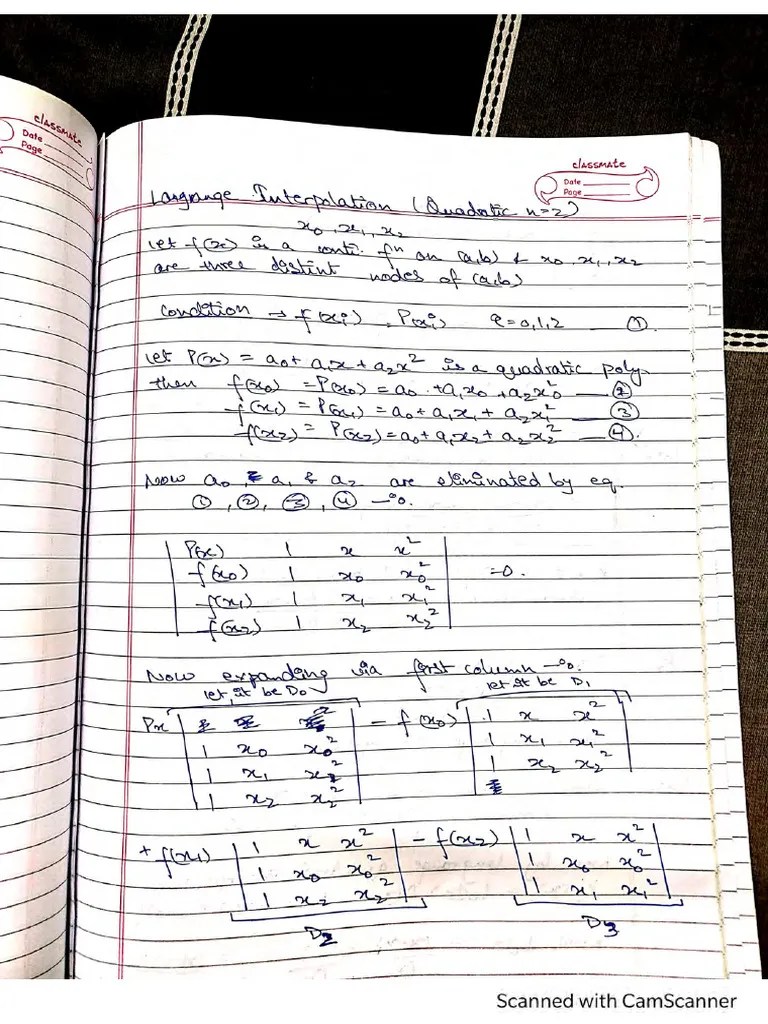 classmate
Date
Page
classmate
Date
Page
Lagrange Interpolation (Quadratic n=2)
x0, x1, x2
Let f(x) is a conti. fⁿ on (a,b) & x0, x1, x2
are three distint nodes of (a,b)
condition → f(xi) , P(xi) i=0,1,2 — ①.
Let P(x) = a0 + a1x + a2x² is a quadratic poly.
then f(x0) = P(x0) = a0 + a1x0 + a2x0² — ②
f(x1) = P(x1) = a0 + a1x1 + a2x1² — ③
f(x2) = P(x2) = a0 + a1x2 + a2x2² — ④.
Now a0, a1 & a2 are eliminated by eq.
①, ②, ③, ④ →
| P(x) 1 x x² |
| f(x0) 1 x0 x0² | =0.
| f(x1) 1 x1 x1² |
| f(x2) 1 x2 x2² |
Now expanding via first column →
let it be D0 let it be D1
Px | 1 x0 x0² | − f(x0) | 1 x x² |
| 1 x1 x1² | | 1 x1 x1² |
| 1 x2 x2² | | 1 x2 x2² |
+ f(x1) | 1 x x² | − f(x2) | 1 x x² |
| 1 x0 x0² | | 1 x0 x0² |
| 1 x2 x2² | | 1 x1 x1² |
D2 D3
Scanned with CamScanner